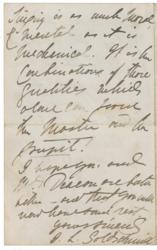 Singing is as much moral
& mental as it is
mechanical. It is the
combinations of those
qualities which
alone can form
the Master and the
pupil.
I hope you and
Deacon are both
well - and that
home and rest
yours sincerely
Goldschmidt